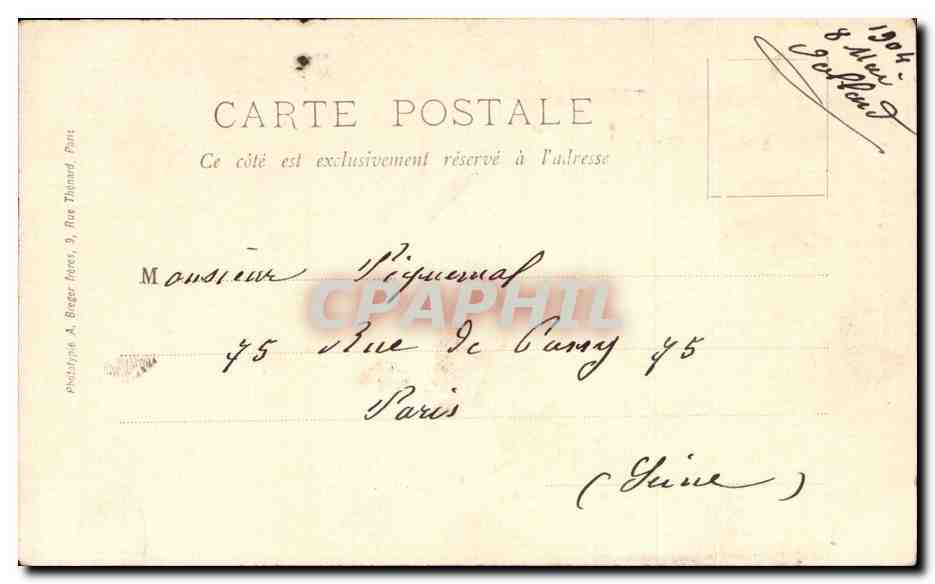 1904.
8 Mai
CARTE POSTALE
Ce côté est exclusivement réservé à l'adresse
Phototypie A. Breger frères, 9, Rue Thénard, Paris
Monsieur Piquemal
CPAPHIL
75 Rue de Passy 75
Paris
(Seine)